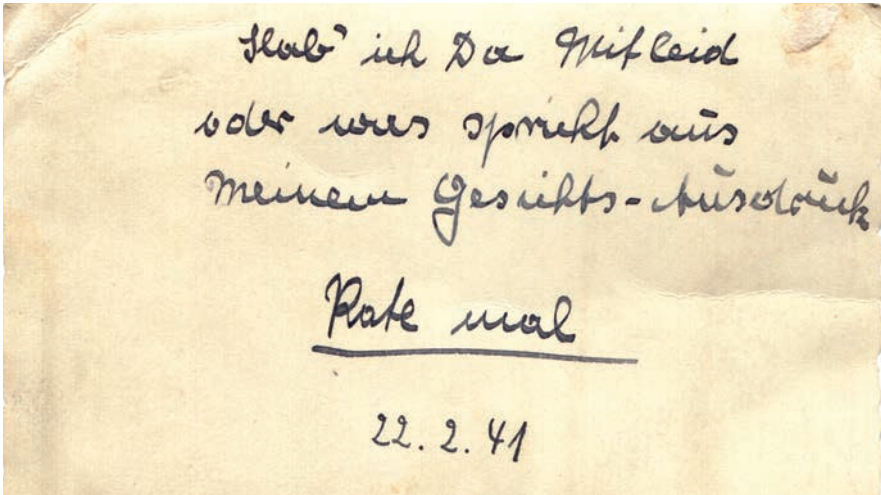 Hab' ich Da Mitleid
oder was spricht aus
meinem Gesichts-Ausdruck
Rate mal
22.2.41